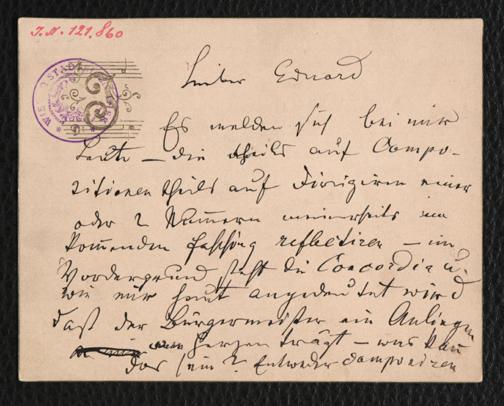 J.N. 121.860
Lieber Eduard
Es melden sich bei mir
Leute – die theils auf Compo-
sitionen theils auf Dirigiren einer
oder 2 Nummern meinerseits im
kommenden Fasching reflectiren – im
Vordergrund steht die Concordia u.
wie mir heut angedeutet wird
daß der Bürgermeister ein Anliegen
am Herzen trägt – was kann
das sein? Entweder componiren